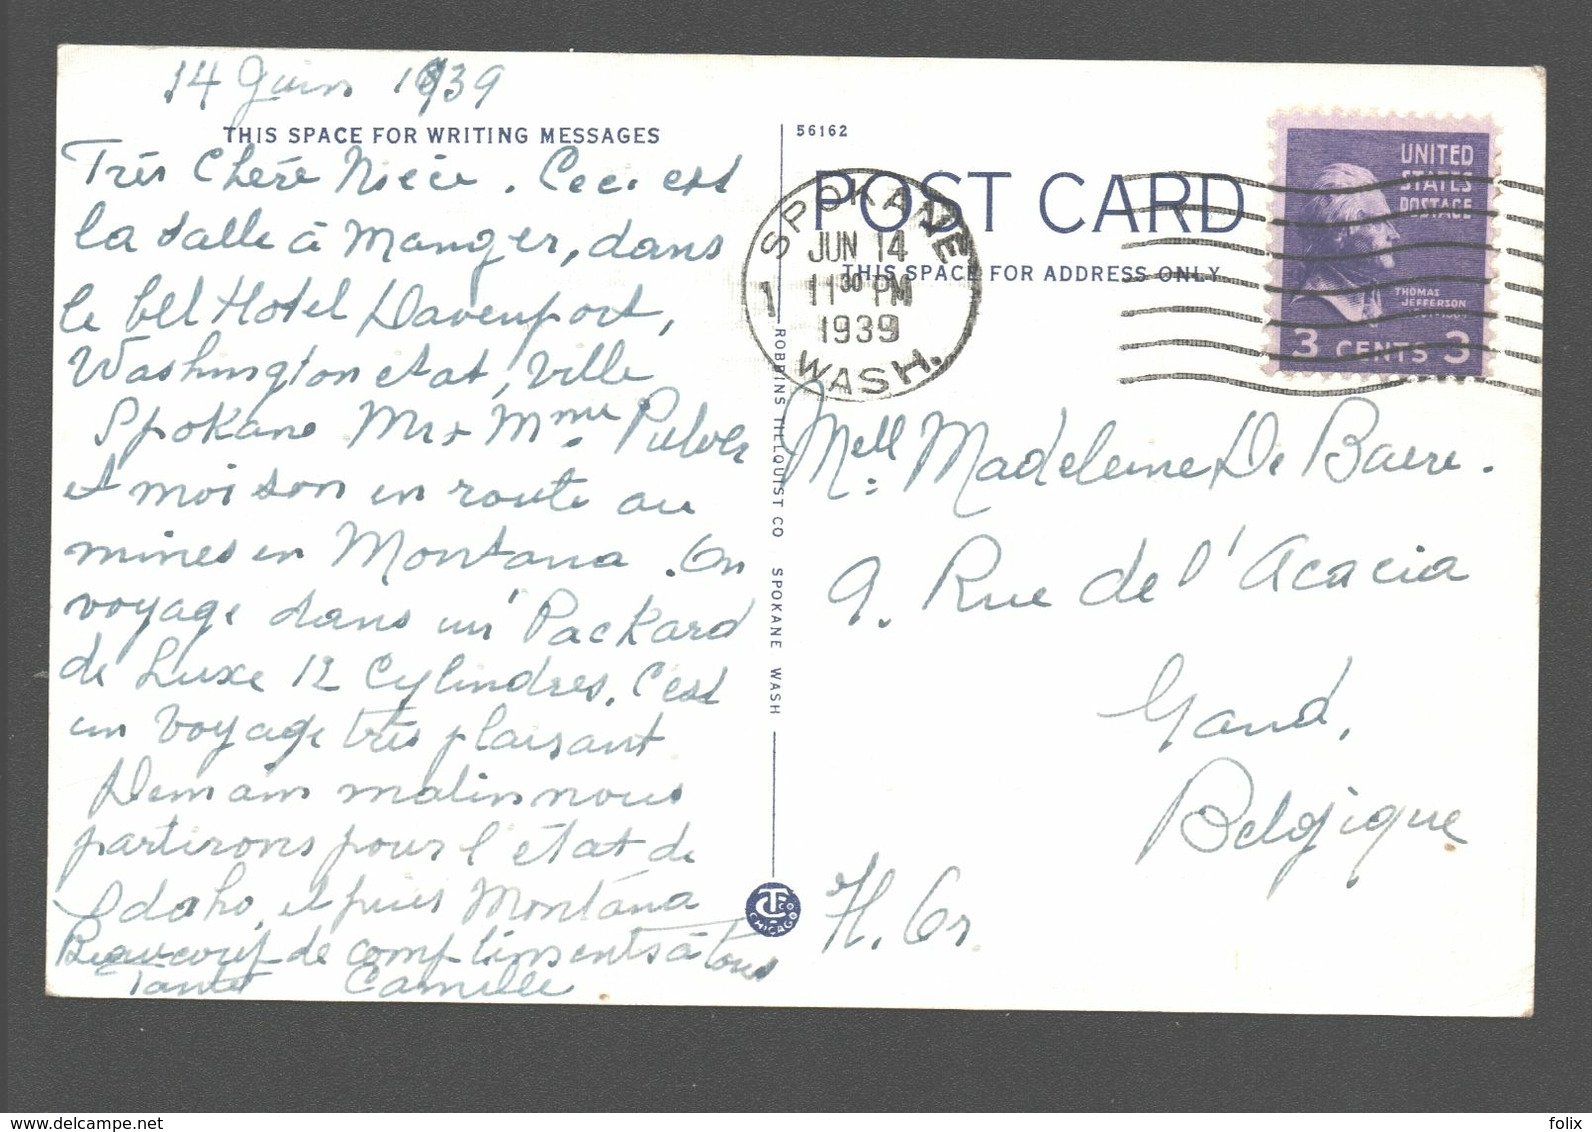 14 Juin 1939
THIS SPACE FOR WRITING MESSAGES
Très Chère Nièce. Ceci est
la salle à Manger, dans
le bel Hotel Davenport,
Washington etat, ville
Spokane Mr + Mme Pulver
et moi son en route au
mines en Montana. On
voyage dans un Packard
de Luxe 12 Cylindres. C'est
un voyage très plaisant
Demain matin nous
partirons pour l'état de
Idaho, et puis Montana
Beaucoup de compliments à tous
Tante Camille
56162
POST CARD
THIS SPACE FOR ADDRESS ONLY
SPOKANE
JUN 14
11 30 PM
1939
WASH.
1
UNITED
STATES
POSTAGE
THOMAS
JEFFERSON
3 CENTS 3
ROBBINS TILLQUIST CO SPOKANE WASH
Mell: Madeleine De Baere.
9. Rue de l'Acacia
Gand,
Belgique
CT CO
CHICAGO
www.delcampe.net
folix